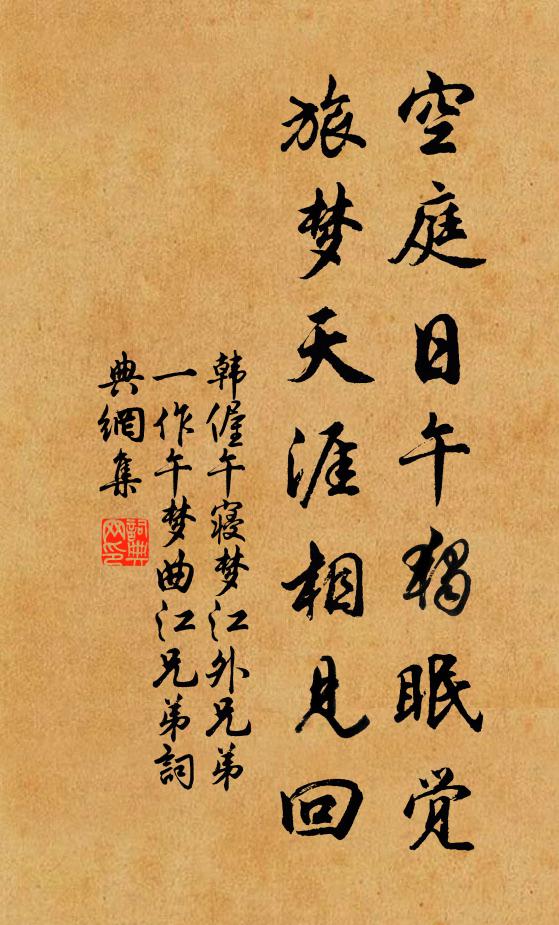 空庭日午独眠觉
旅梦天涯相见回
韩偓午寝梦江外兄弟
一作午梦曲江兄弟詞
典網集
詞典
网印